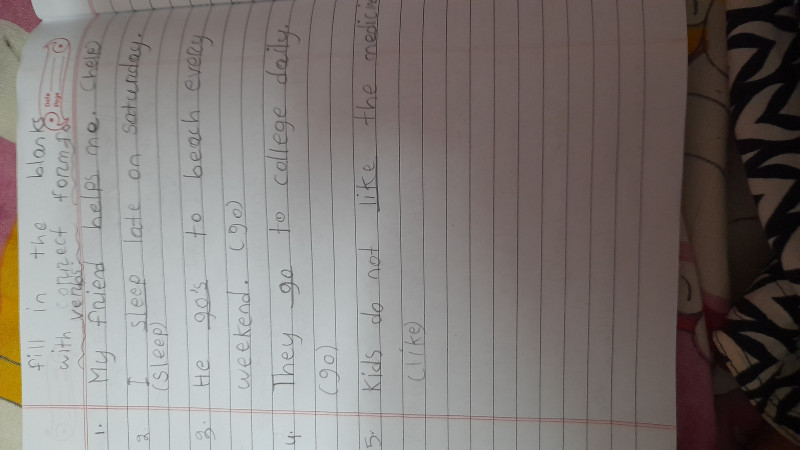 fill in the blanks
with correct forms of
verbs.
1. My friend helps me. (help)
2 I sleep late on Saturday.
(sleep)
3. He go's to beach every
weekend. (go)
4. They go to college daily.
(go)
5. Kids do not like the medicine
(like)
Date
Page